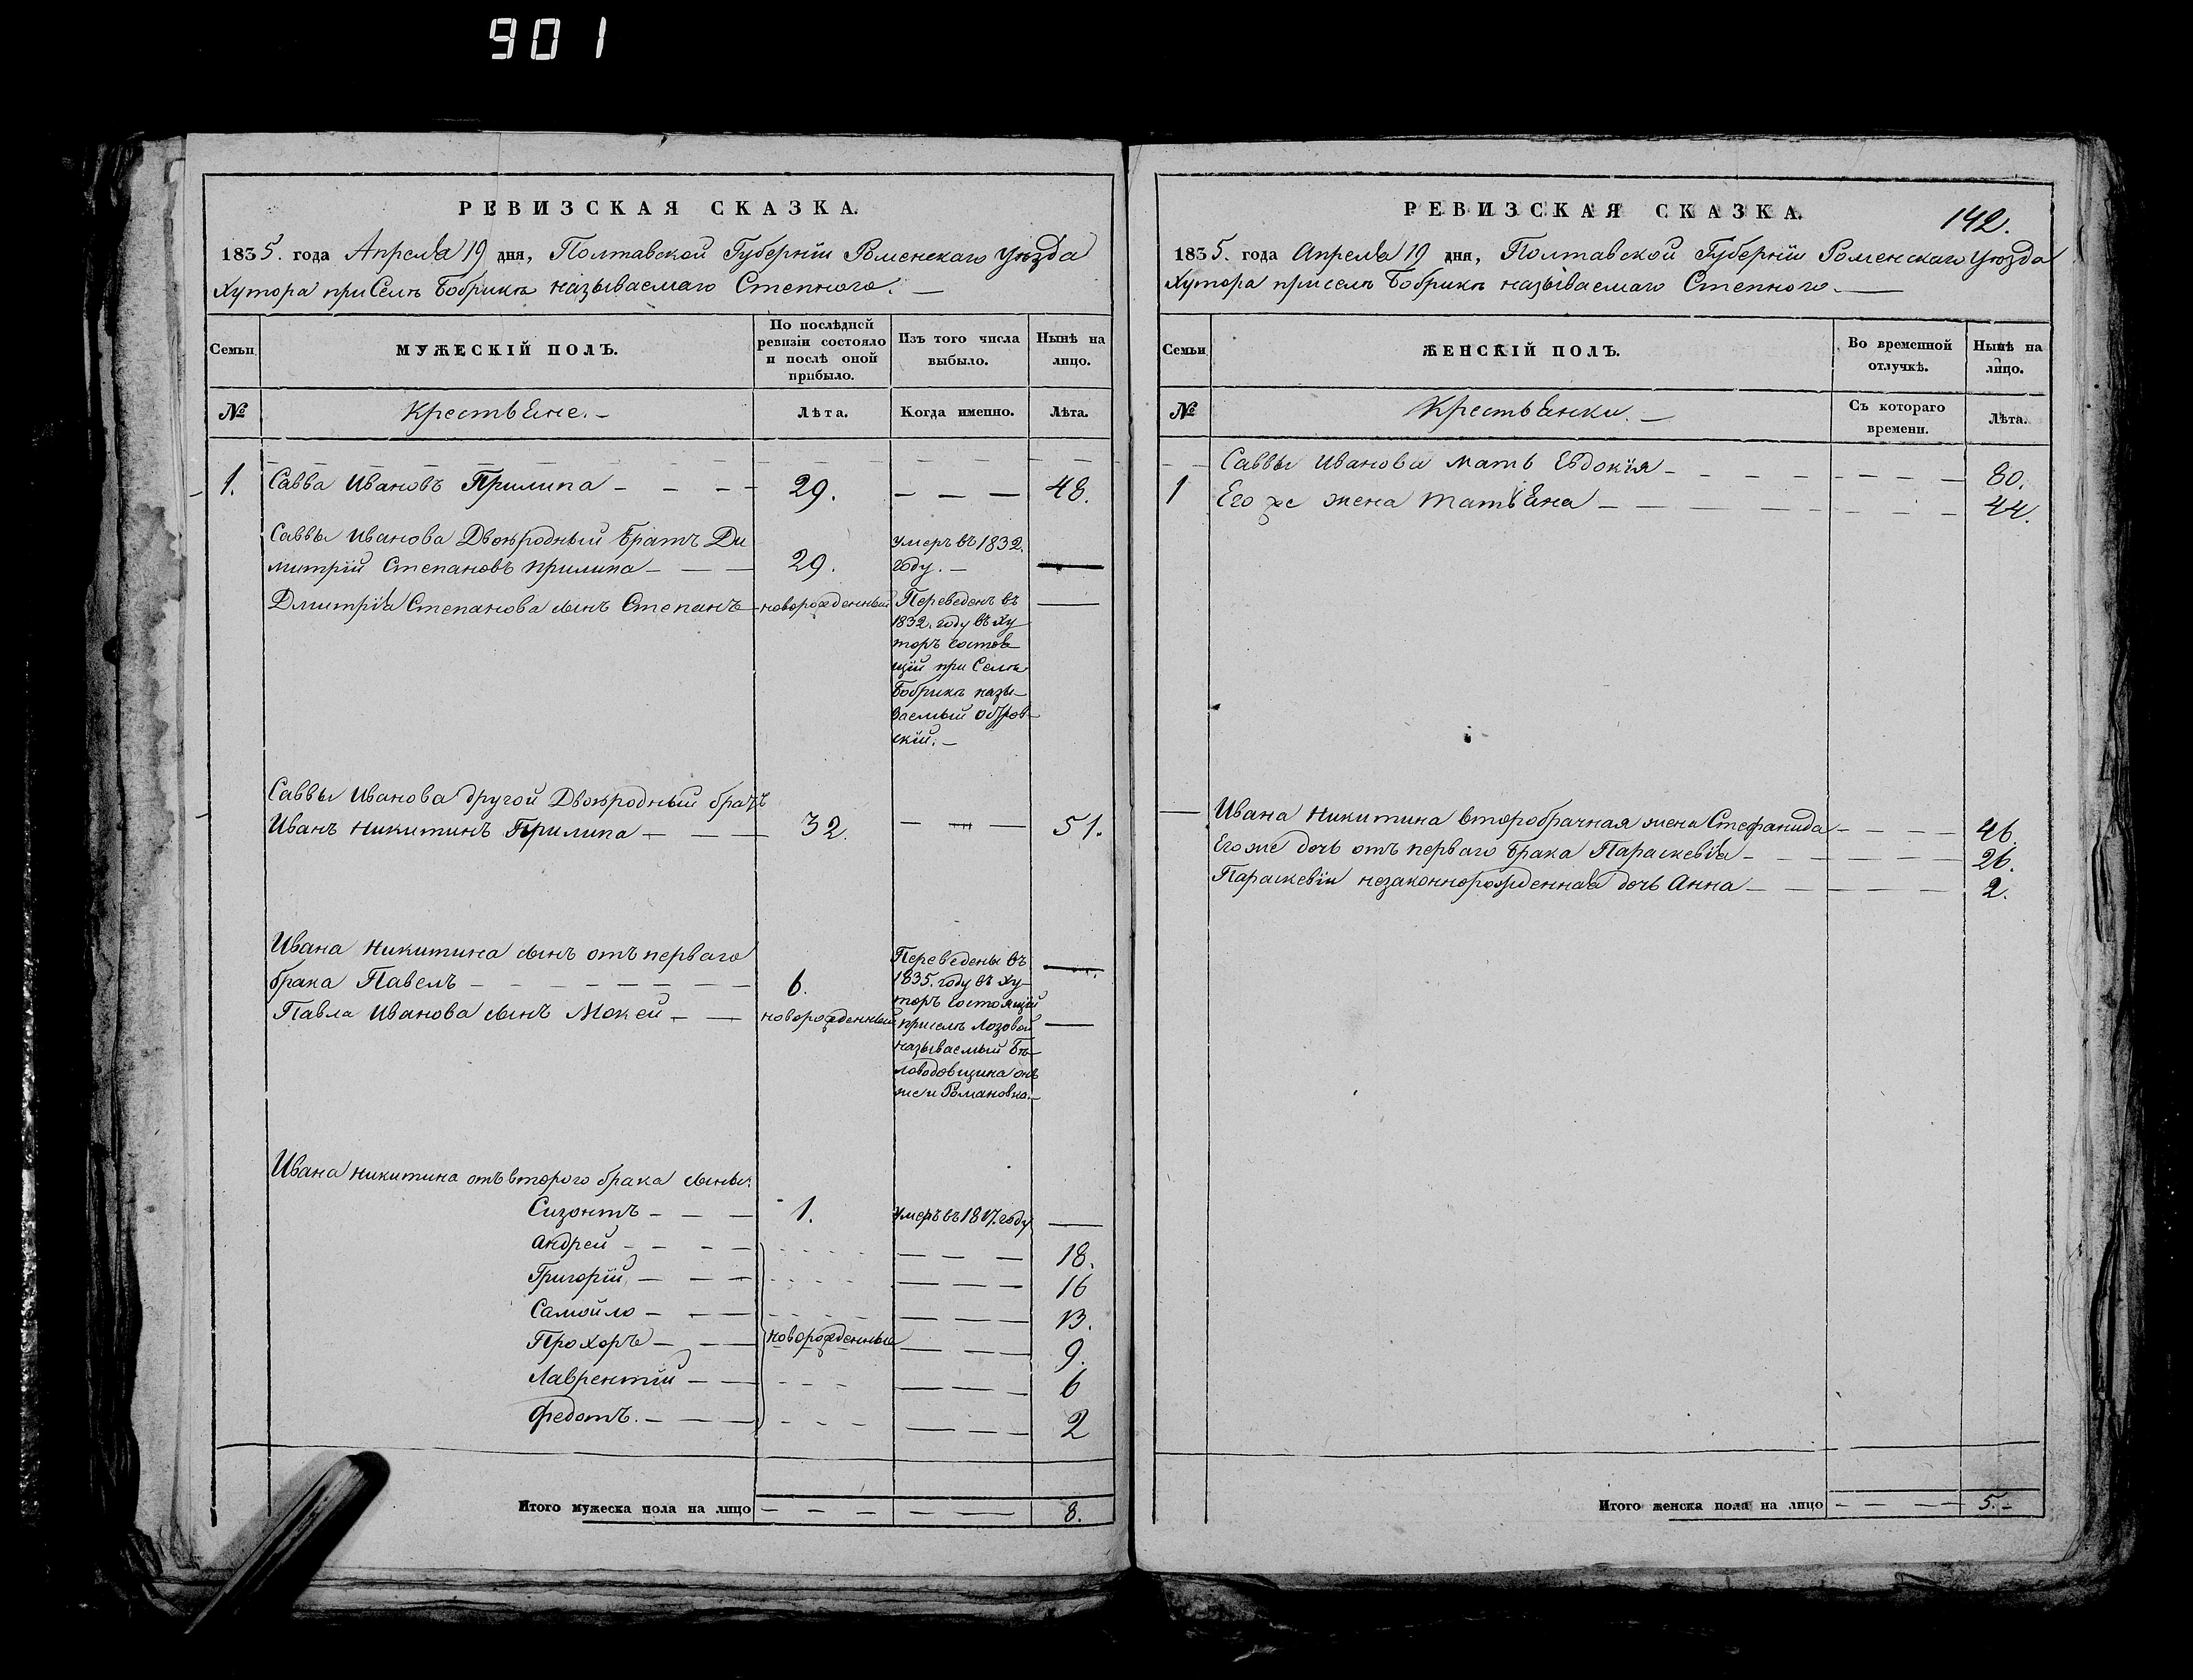 901
РЕВИЗСКАЯ СКАЗКА.
1835. года Апреля 19 дня, Полтавской Губернїи Роменскаго уѣзда
Хутора при Селѣ Бобрикѣ называемаго Степного. —
Семьи
МУЖЕСКІЙ ПОЛЪ.
По послѣдней ревизіи состояло и послѣ оной прибыло.
Изъ того числа выбыло.
Нынѣ на лицо.
№
Крестьяне. —
Лѣта.
Когда именно.
Лѣта.
1. Савва Ивановъ Прилипа — — — 29. — — — 48.
Саввы Иванова Двоюродный братъ Ди
митрїй Степановъ Прилипа — — — 29. умеръ въ 1832. году. — —
Дмитрїя Степанова сынъ Степанъ — новорожденный Переведенъ въ —
1832. году въ ху
торъ состоя
щїй при Селѣ
Бобрикѣ назы-
ваемый
скїй. —
Саввы Иванова другой Двоюродный братъ
Иванъ Никитинъ Прилипа — — — 32. — — — 51.
Ивана Никитина сынъ отъ перваго
брака Павелъ — — — — — — — 6. Переведены въ —
1835. году въ ху-
Павла Иванова сынъ Мокей — — новорожденный торъ состоящїй —
при селѣ Лозовой
называемый Бѣ-
ловодовщина онъ
же и Романовка. —
Ивана Никитина отъ второго брака сыны:
Сизонтъ — — — 1. умеръ въ 1817. году —
Андрей — — — — — — — 18.
Григорїй — — — — — — 16
Самойло — — — — — — 13.
Прохоръ — — — новорожденные — — — 9.
Лаврентїй — — — — — 6
Федотъ. — — — — — — 2
Итого мужеска пола на лицо — — — — — 8.
РЕВИЗСКАЯ СКАЗКА.
142.
1835. года Апреля 19 дня, Полтавской Губернїи Роменскаго уѣзда
Хутора при селѣ Бобрикѣ называемаго Степного. —
Семьи
ЖЕНСКІЙ ПОЛЪ.
Во временной отлучкѣ.
Нынѣ на лицо.
№
Крестьянки. —
Съ котораго времени.
Лѣта.
Саввы Иванова мать Евдокїя — — — — — — 80.
1 Его же жена Татьяна — — — — — — — 44.
— Ивана Никитина второбрачная жена Стефанида — — — — 46.
Его же дочь отъ перваго брака Параскевїя — — — — — 26.
Параскевїи незаконнорожденная дочь Анна — — — — — 2.
Итого женска пола на лицо — — — — 5. —